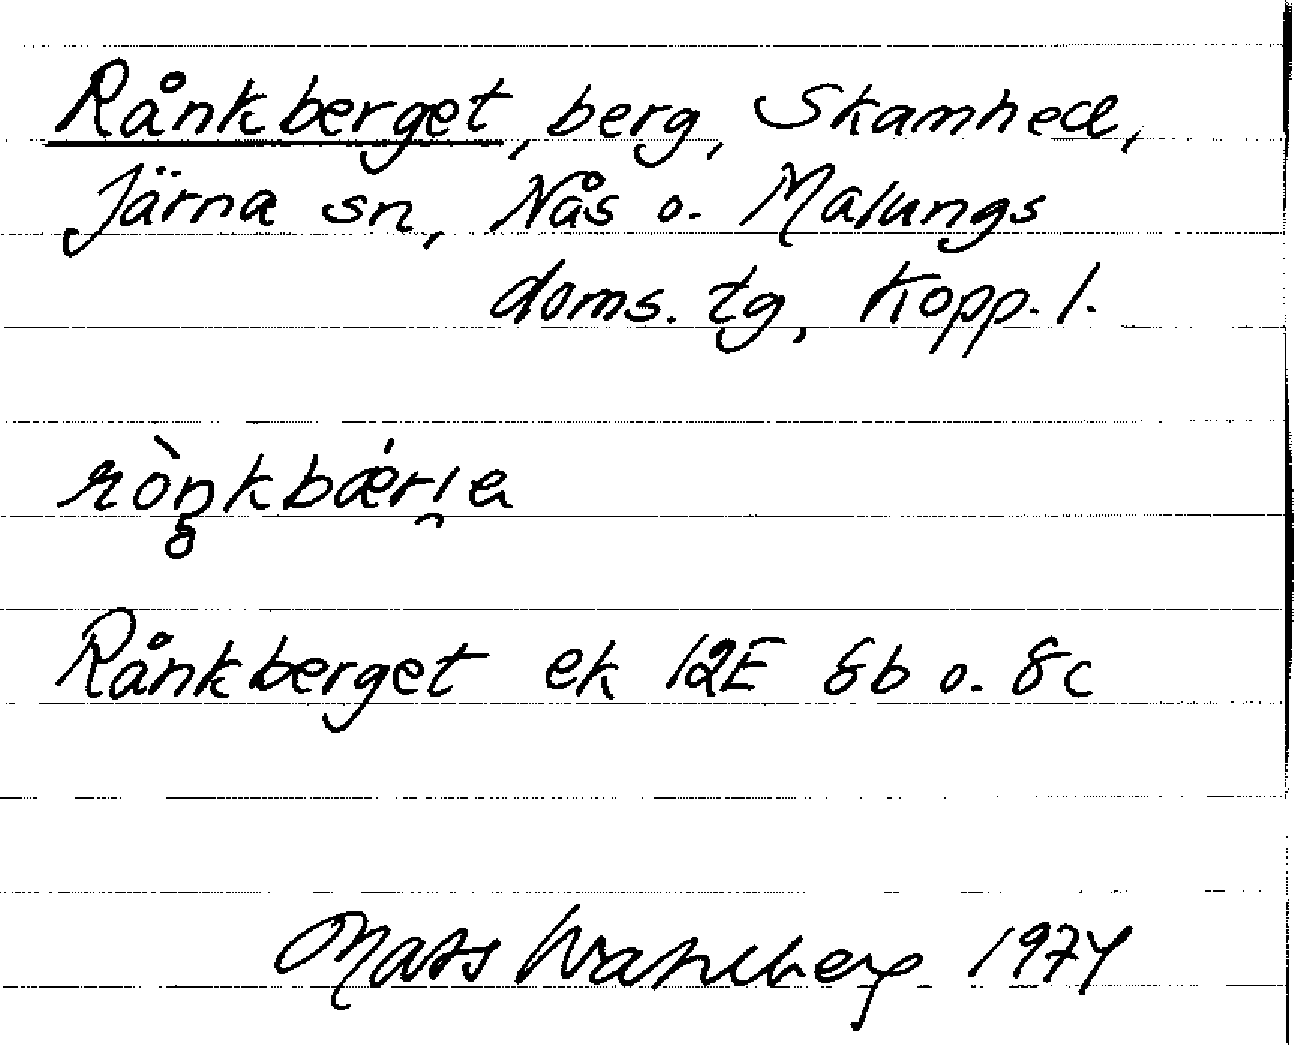 Rånkberget, berg, Skamhed,
Järna sn, Nås o. Malungs
doms. tg, Kopp. l.
rò̥ŋkbǽrı̯a
Rånkberget ek 12E 8b o. 8c
Mats Wahlberg 1974